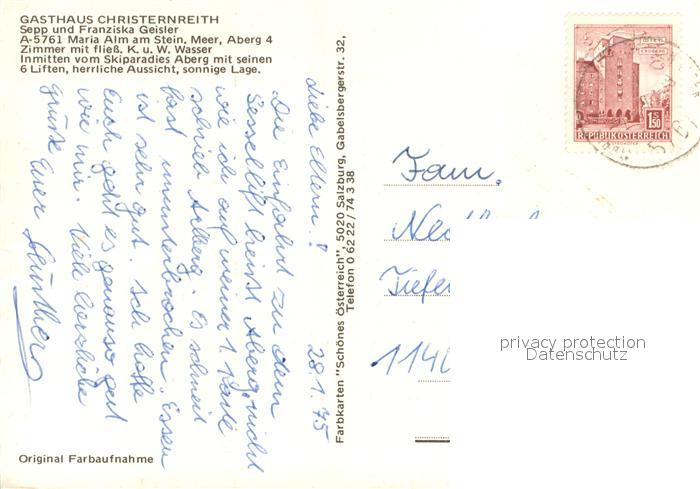 GASTHAUS CHRISTERNREITH
Sepp und Franziska Geisler
A-5761 Maria Alm am Stein. Meer, Aberg 4
Zimmer mit fließ. K. u. W. Wasser
Inmitten vom Skiparadies Aberg mit seinen
6 Liften, herrliche Aussicht, sonnige Lage.
28.1.75
Liebe Eltern!
Die Einfahrt zu dem
Sessellift heißt Aberg, nicht
wie ich auf meiner 1. Karte
schrieb Arlberg. Es schneit
fast ununterbrochen. Essen
ist sehr gut. Ich hoffe
Euch geht es genauso gut
wie mir. Viele herzliche
Grüße Euer Günther
Original Farbaufnahme
Farbkarten "Schönes Österreich", 5020 Salzburg, Gabelsbergerstr. 32,
Telefon 0 62 22 / 74 3 38
1.50
REPUBLIK ÖSTERREICH
Fam.
Tiefe
1140
privacy protection
Datenschutz